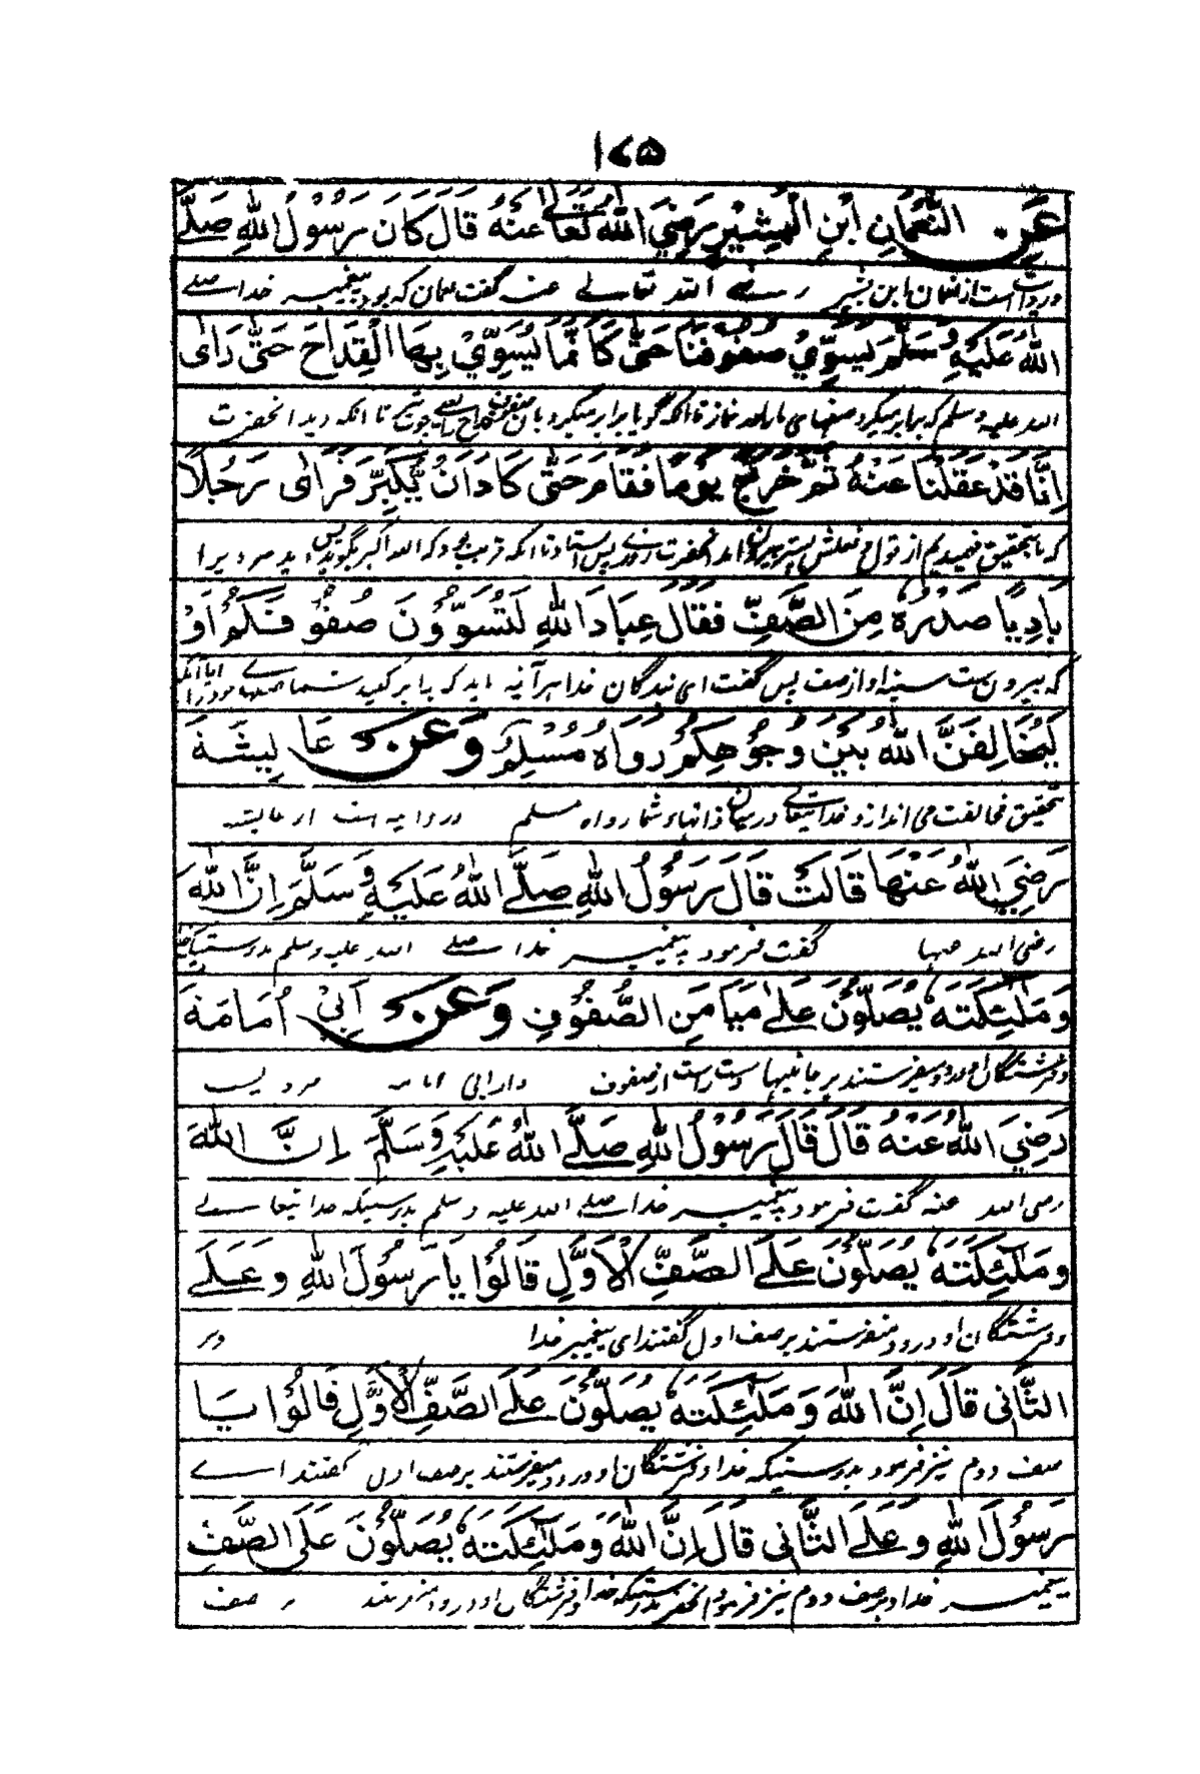 ١٧٥
عَنِ النُّعْمَانِ ابْنِ الْبَشِيْرِ رَضِيَ اللهُ تَعَالٰى عَنْهُ قَالَ كَانَ رَسُوْلُ اللهِ صَلَّى
وروایت است از نعمان ابن بشیر رضے اللہ تعالے عنہ گفت نعمان کہ بود پیغمبر خدا صلے
اللهُ عَلَيْهِ وَسَلَّمَ يُسَوِّيْ صُفُوْفَنَا حَتّٰى كَاَنَّمَا يُسَوِّيْ بِهَا الْقِدَاحَ حَتّٰى رَاٰى
اللہ علیہ وسلم کہ برابر میکرد صفہای مارا در نماز تا آنکہ گویا برابر میکرد بان تا آنکہ دید آنحضرت
اِنَّا قَدْ عَقَلْنَا عَنْهُ ثُمَّ خَرَجَ يَوْمًا فَقَامَ حَتّٰى كَادَ اَنْ يُّكَبِّرَ فَرَاٰى رَجُلًا
کہ ما بتحقیق فہمیدیم از قول و فعلش پستر بیرون آمد آنحضرت روزے پس استاد تا آنکہ قریب بود کہ اللہ اکبر بگوید پس دید مردیرا
بَادِيًا صَدْرُهٗ مِنَ الصَّفِّ فَقَالَ عِبَادَ اللهِ لَتُسَوُّوْنَ صُفُوْفَكُمْ اَوْ
کہ بیرون ست سینہ او از صف پس گفت ای بندگان خدا ہر آئینہ باید کہ برابر کنید شما صفہا خود را
لَيُخَالِفَنَّ اللهُ بَيْنَ وُجُوْهِكُمْ رَوَاهُ مُسْلِمٌ وَعَنْ عَا لِيشَةَ
تحقیق مخالفت می اندازد خدا تعالے درمیان ذاتہاء شما رواہ مسلم وروایہ است از عایشہ
رَضِيَ اللهُ عَنْهَا قَالَتْ قَالَ رَسُوْلُ اللهِ صَلَّى اللهُ عَلَيْهِ وَسَلَّمَ اِنَّ اللهَ
رضی اللہ عنہا گفت فرمود پیغمبر خدا صلے اللہ علیہ وسلم بدرستیکہ
وَمَلٰٓئِكَتَهٗ يُصَلُّوْنَ عَلٰى مَيَامِنِ الصُّفُوْفِ وَعَنْ اَبِيْ اُمَامَةَ
وفرشتگان او درود میفرستند بر جانبہا دست راست از صفوف و از ابی امامہ مرویست
رَضِيَ اللهُ عَنْهُ قَالَ قَالَ رَسُوْلُ اللهِ صَلَّى اللهُ عَلَيْهِ وَسَلَّمَ اِنَّ اللهَ
رضی اللہ عنہ گفت فرمود پیغمبر خدا صلے اللہ علیہ وسلم بدرستیکہ خدا تعالے
وَمَلٰٓئِكَتَهٗ يُصَلُّوْنَ عَلَى الصَّفِّ الْاَوَّلِ قَالُوْا يَا رَسُوْلَ اللهِ وَعَلَى
وفرشتگان او درود میفرستند بر صف اول گفتند ای پیغمبر خدا وبر
الثَّانِى قَالَ اِنَّ اللهَ وَمَلٰٓئِكَتَهٗ يُصَلُّوْنَ عَلَى الصَّفِّ الْاَوَّلِ قَالُوْا يَا
صف دوم نیز فرمود بدرستیکہ خدا وفرشتگان او درود میفرستند بر صف اول گفتند اے
رَسُوْلَ اللهِ وَعَلَى الثَّانِى قَالَ اِنَّ اللهَ وَمَلٰٓئِكَتَهٗ يُصَلُّوْنَ عَلَى الصَّفِّ
پیغمبر خدا وبر صف دوم نیز فرمود آنحضرت بدرستیکہ خدا وفرشتگان او درود میفرستند بر صف